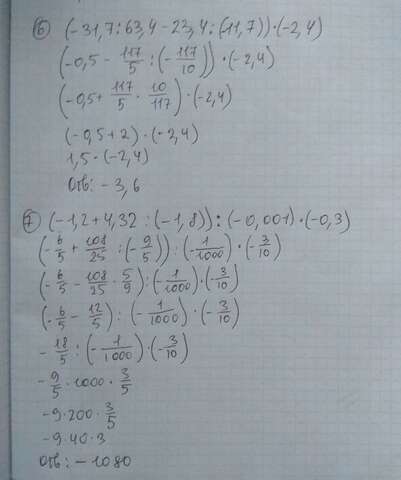 6) (-31,7:63,4-23,4:(-11,7))·(-2,4)
(-0,5-117/5:(-117/10))·(-2,4)
(-0,5+117/5·10/117)·(-2,4)
(-0,5+2)·(-2,4)
1,5·(-2,4)
Отв: -3,6
7) (-1,2+4,32:(-1,8)):(-0,001)·(-0,3)
(-6/5+108/25:(-9/5)):(-1/1000)·(-3/10)
(-6/5-108/25·5/9):(-1/1000)·(-3/10)
(-6/5-12/5):(-1/1000)·(-3/10)
-18/5:(-1/1000)·(-3/10)
-9/5·1000·3/5
-9·200·3/5
-9·40·3
Отв: -1080